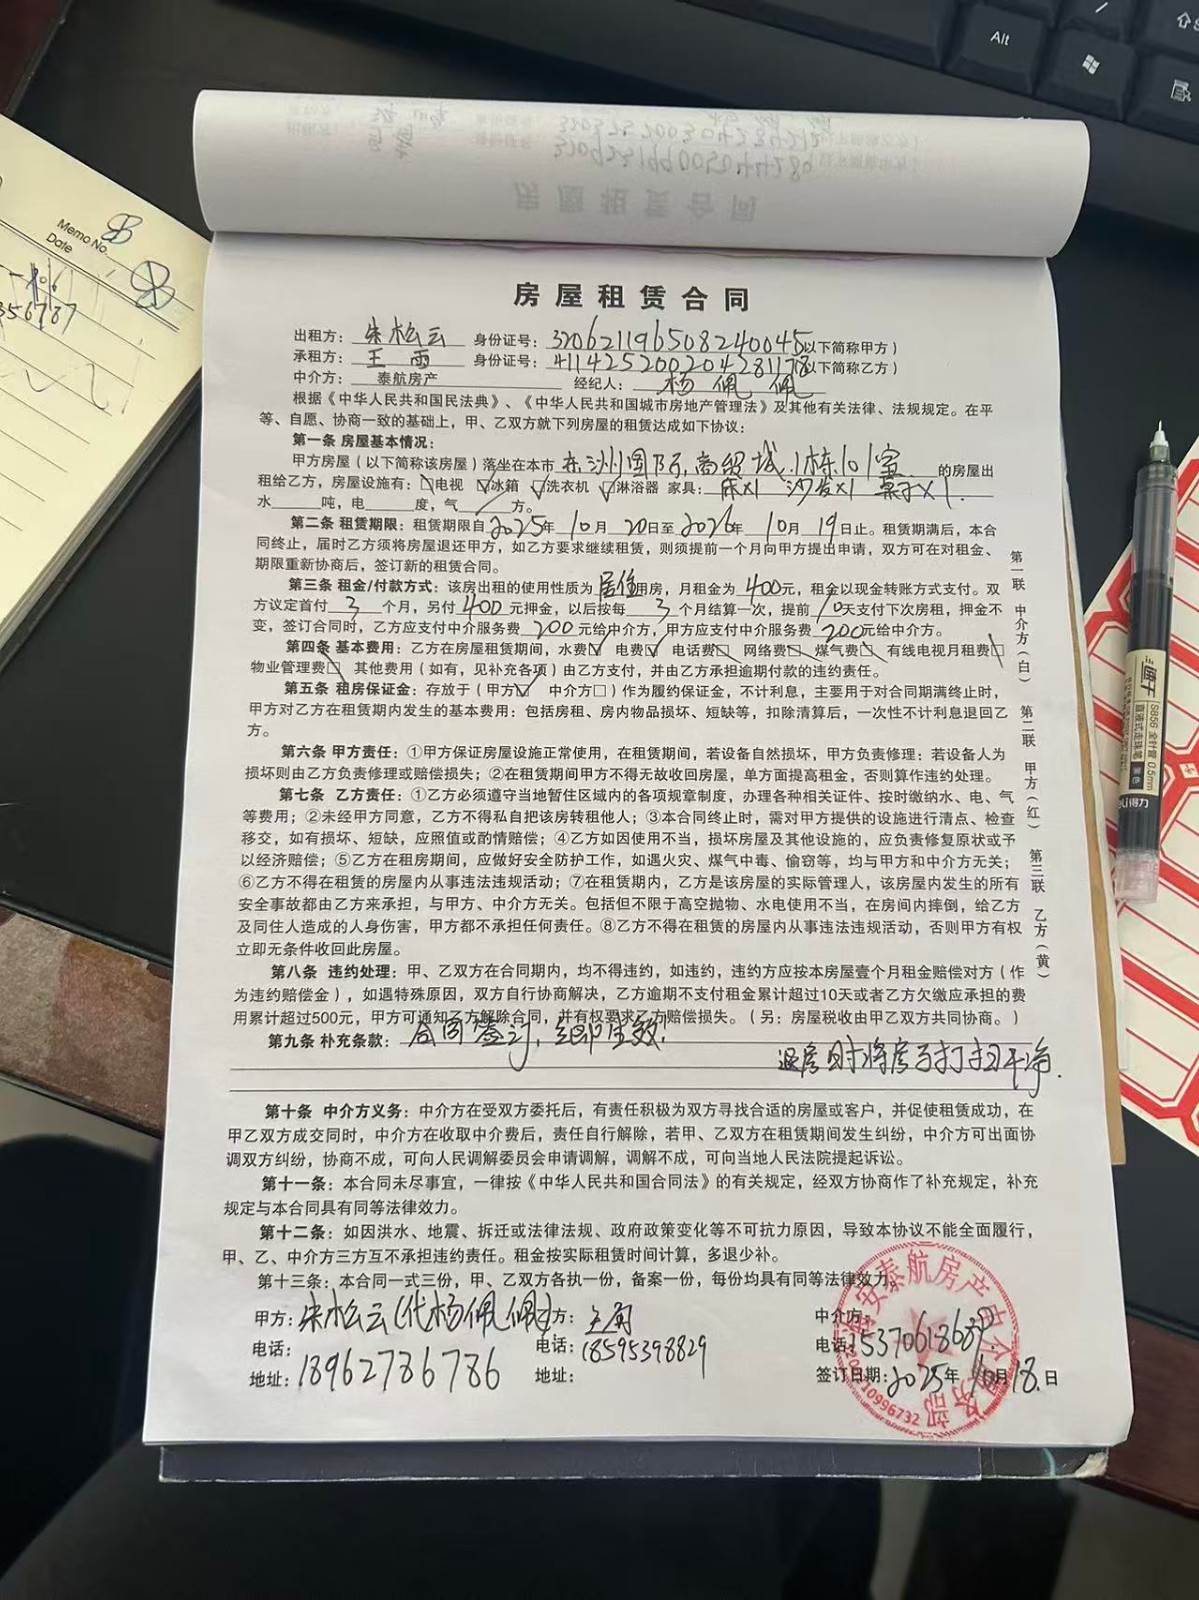 Alt
Memo No.
Date
356787
房屋租赁合同
出租方：朱松云 身份证号：320621196508240045(以下简称甲方)
承租方：王雨 身份证号：411425200204281178(以下简称乙方)
中介方：泰航房产 经纪人：杨佩佩
根据《中华人民共和国民法典》、《中华人民共和国城市房地产管理法》及其他有关法律、法规规定。在平
等、自愿、协商一致的基础上，甲、乙双方就下列房屋的租赁达成如下协议：
第一条 房屋基本情况：
甲方房屋（以下简称该房屋）落坐在本市 洲国际商贸城1栋101室 的房屋出
租给乙方，房屋设施有：□电视 ☑冰箱 ☑洗衣机 ☑淋浴器 家具：床x1 沙发x1 桌子x1.
水 吨，电 度，气 方。
第二条 租赁期限：租赁期限自2025年10月20日至2026年10月19日止。租赁期满后，本合
同终止，届时乙方须将房屋退还甲方，如乙方要求继续租赁，则须提前一个月向甲方提出申请，双方可在对租金、
期限重新协商后，签订新的租赁合同。
第三条 租金/付款方式：该房出租的使用性质为居住用房，月租金为400元，租金以现金转账方式支付。双
方议定首付3个月，另付400元押金，以后按每3个月结算一次，提前10天支付下次房租，押金不
变，签订合同时，乙方应支付中介服务费200元给中介方，甲方应支付中介服务费200元给中介方。
第四条 基本费用：乙方在房屋租赁期间，水费☑ 电费☑ 电话费□ 网络费□ 煤气费□ 有线电视月租费□
物业管理费□ 其他费用（如有，见补充各项）由乙方支付，并由乙方承担逾期付款的违约责任。
第五条 租房保证金：存放于（甲方☑ 中介方□）作为履约保证金，不计利息，主要用于对合同期满终止时，
甲方对乙方在租赁期内发生的基本费用：包括房租、房内物品损坏、短缺等，扣除清算后，一次性不计利息退回乙
方。
第六条 甲方责任：①甲方保证房屋设施正常使用，在租赁期间，若设备自然损坏，甲方负责修理：若设备人为
损坏则由乙方负责修理或赔偿损失；②在租赁期间甲方不得无故收回房屋，单方面提高租金，否则算作违约处理。
第七条 乙方责任：①乙方必须遵守当地暂住区域内的各项规章制度，办理各种相关证件、按时缴纳水、电、气
等费用；②未经甲方同意，乙方不得私自把该房转租他人；③本合同终止时，需对甲方提供的设施进行清点、检查
移交，如有损坏、短缺，应照值或酌情赔偿；④乙方如因使用不当，损坏房屋及其他设施的，应负责修复原状或予
以经济赔偿；⑤乙方在租房期间，应做好安全防护工作，如遇火灾、煤气中毒、偷窃等，均与甲方和中介方无关；
⑥乙方不得在租赁的房屋内从事违法违规活动；⑦在租赁期内，乙方是该房屋的实际管理人，该房屋内发生的所有
安全事故都由乙方来承担，与甲方、中介方无关。包括但不限于高空抛物、水电使用不当，在房间内摔倒，给乙方
及同住人造成的人身伤害，甲方都不承担任何责任。⑧乙方不得在租赁的房屋内从事违法违规活动，否则甲方有权
立即无条件收回此房屋。
第八条 违约处理：甲、乙双方在合同期内，均不得违约，如违约，违约方应按本房屋壹个月租金赔偿对方（作
为违约赔偿金），如遇特殊原因，双方自行协商解决，乙方逾期不支付租金累计超过10天或者乙方欠缴应承担的费
用累计超过500元，甲方可通知乙方解除合同，并有权要求乙方赔偿损失。（另：房屋税收由甲乙双方共同协商。）
第九条 补充条款：合同签订，立即生效.
退房时将房子打扫干净.
第十条 中介方义务：中介方在受双方委托后，有责任积极为双方寻找合适的房屋或客户，并促使租赁成功，在
甲乙双方成交同时，中介方在收取中介费后，责任自行解除，若甲、乙双方在租赁期间发生纠纷，中介方可出面协
调双方纠纷，协商不成，可向人民调解委员会申请调解，调解不成，可向当地人民法院提起诉讼。
第十一条：本合同未尽事宜，一律按《中华人民共和国合同法》的有关规定，经双方协商作了补充规定，补充
规定与本合同具有同等法律效力。
第十二条：如因洪水、地震、拆迁或法律法规、政府政策变化等不可抗力原因，导致本协议不能全面履行，
甲、乙、中介方三方互不承担违约责任。租金按实际租赁时间计算，多退少补。
第十三条：本合同一式三份，甲、乙双方各执一份，备案一份，每份均具有同等法律效力。
甲方：朱松云(代杨佩佩) 方：王雨 中介方：
电话：18962786786 电话：18595398829 电话：15370618689
地址： 地址： 签订日期：2025年10月18.日
安泰航房产中介服务部
第一联 中介方（白） 第二联 甲方（红） 第三联 乙方（黄）
S856 全针管 0.5mm
直液式走珠笔 黑色
deli得力